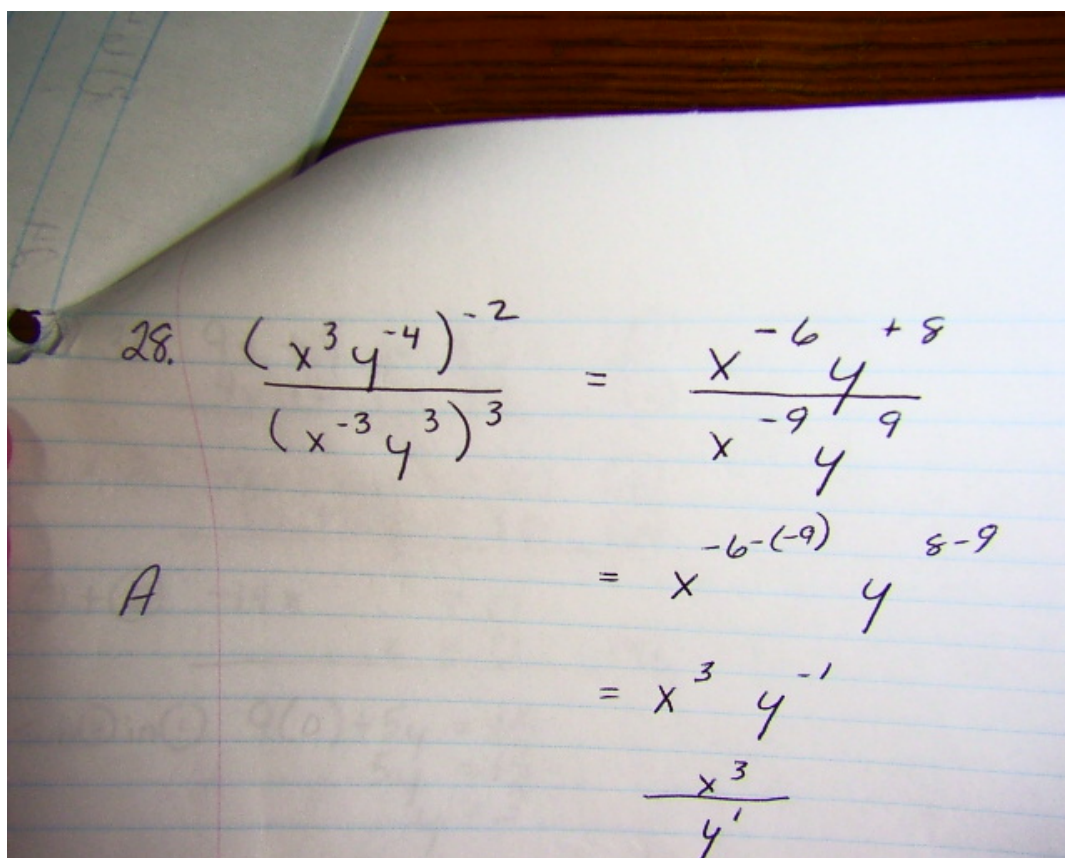 28. (x^3 y^-4)^-2 / (x^-3 y^3)^3 = x^-6 y^+8 / x^-9 y^9
= x^-6-(-9) y^8-9
A
= x^3 y^-1
x^3 / y^1